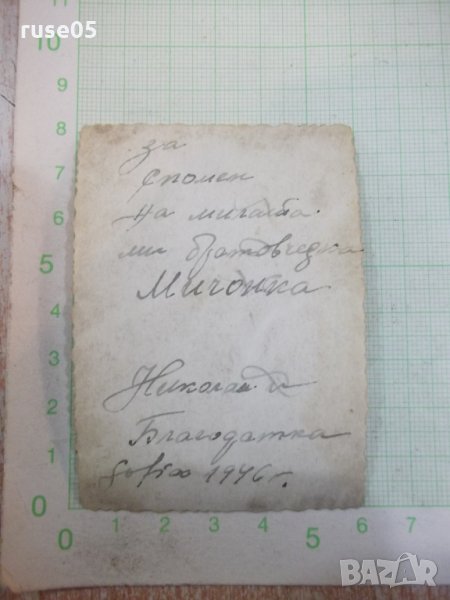 ruse05
за
спомен
на милата
ми братовчедка
Мичонка
Николай и
Благодатка
Sofia 1946 г.
BAZAR
11
10
9
8
7
6
5
4
3
2
1
0
0 1 2 3 4 5 6 7